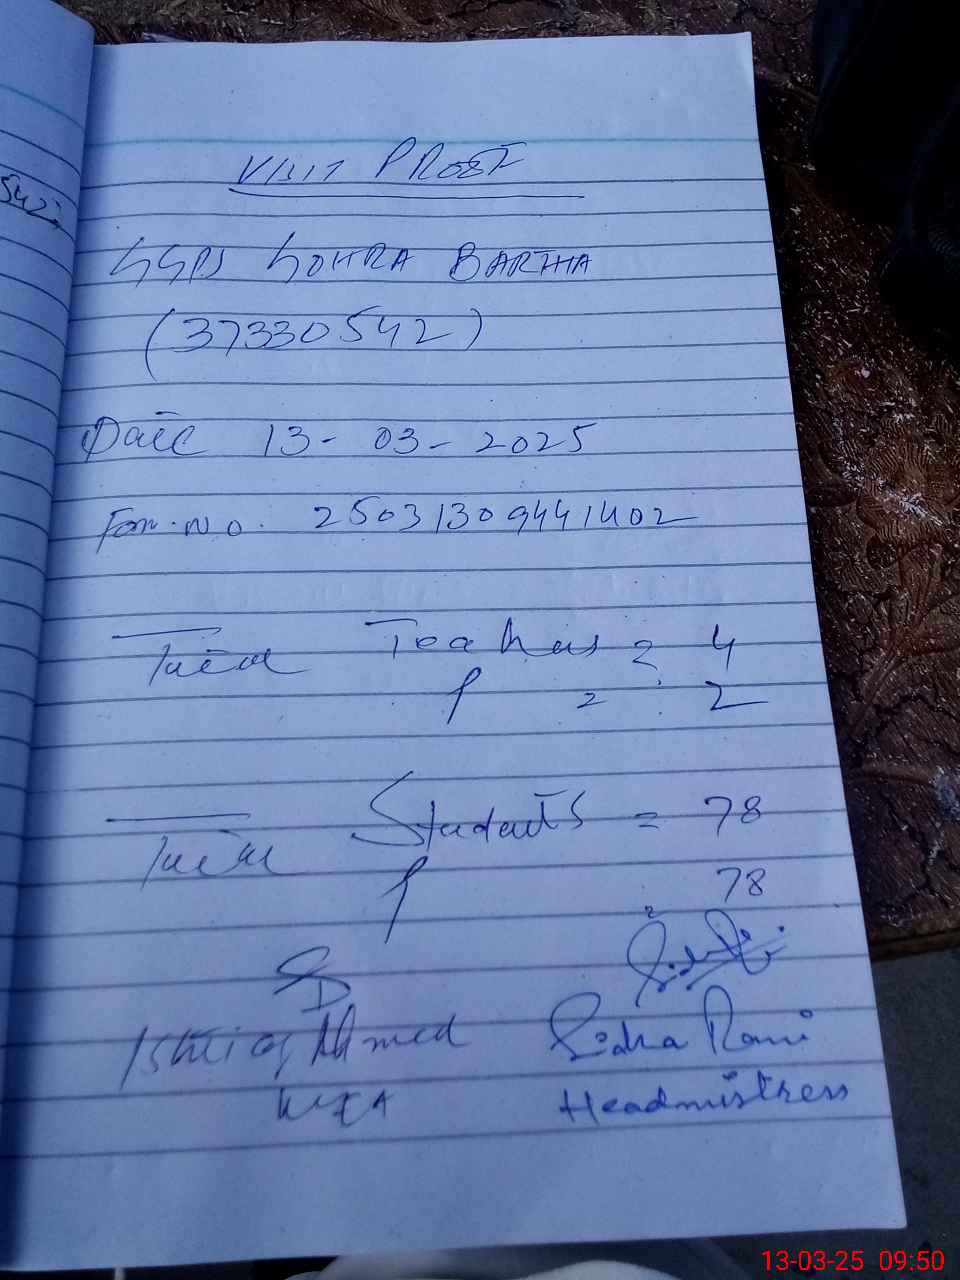 542
VISIT PROOF
GGPS GOHRA BARTHA
(37330542)
Date 13-03-2025
Form.No. 25031309441402
Teachers = 4
P = 2
Students = 78
P 78
SD
Ishtiaq Ahmed Sidra Rani
MEA Headmistress
13-03-25 09:50